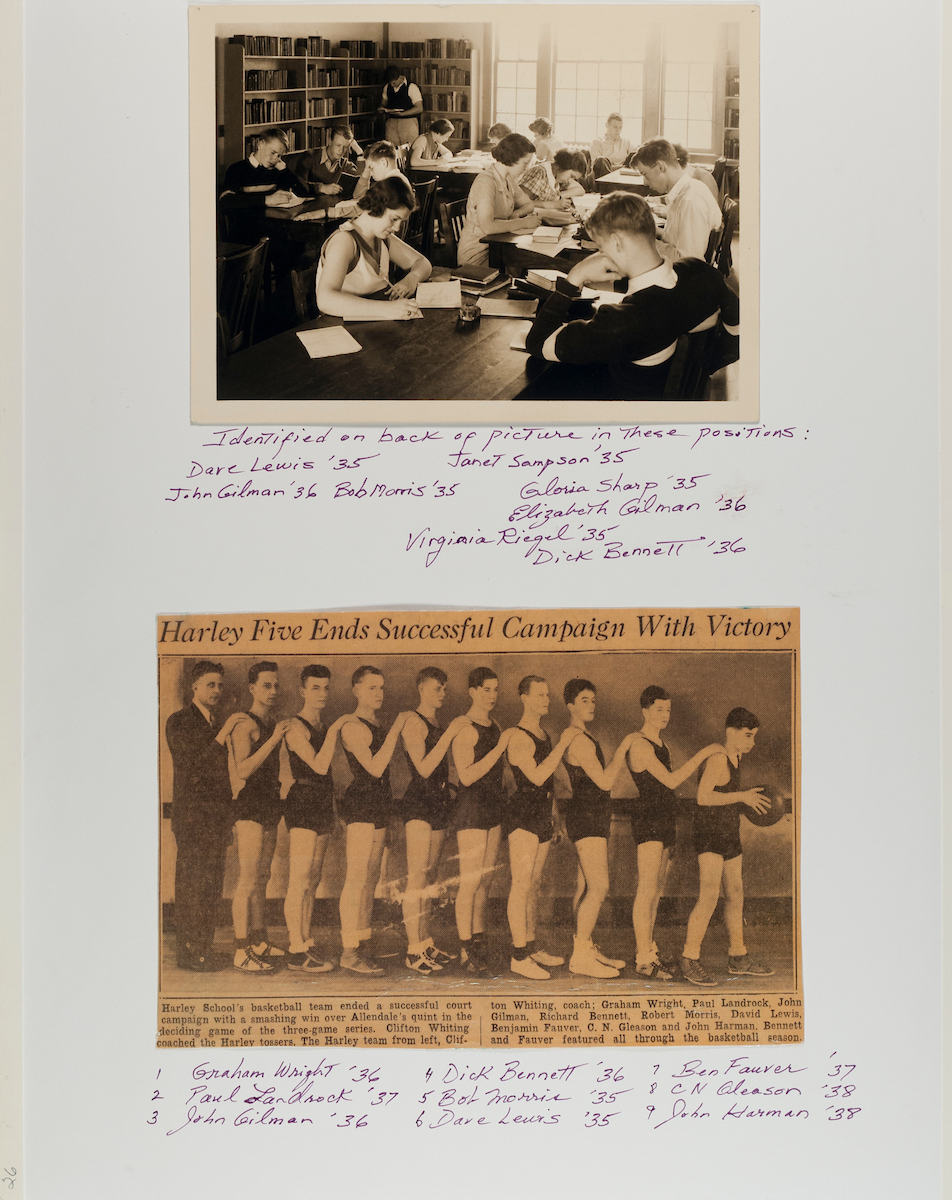 Identified on back of picture in these positions:
Dave Lewis '35 Janet Sampson '35
John Gilman '36 Bob Morris '35 Gloria Sharp '35
Elizabeth Gilman '36
Virginia Riegel '35
Dick Bennett '36
Harley Five Ends Successful Campaign With Victory
Harley School's basketball team ended a successful court
campaign with a smashing win over Allendale's quint in the
deciding game of the three-game series. Clifton Whiting
coached the Harley tossers. The Harley team from left, Clif-
ton Whiting, coach; Graham Wright, Paul Landrock, John
Gilman, Richard Bennett, Robert Morris, David Lewis,
Benjamin Fauver, C. N. Gleason and John Harman. Bennett
and Fauver featured all through the basketball season.
1 Graham Wright '36 4 Dick Bennett '36 7 Ben Fauver '37
2 Paul Landrock '37 5 Bob Morris '35 8 CN Gleason '38
3 John Gilman '36 6 Dave Lewis '35 9 John Harman '38
26